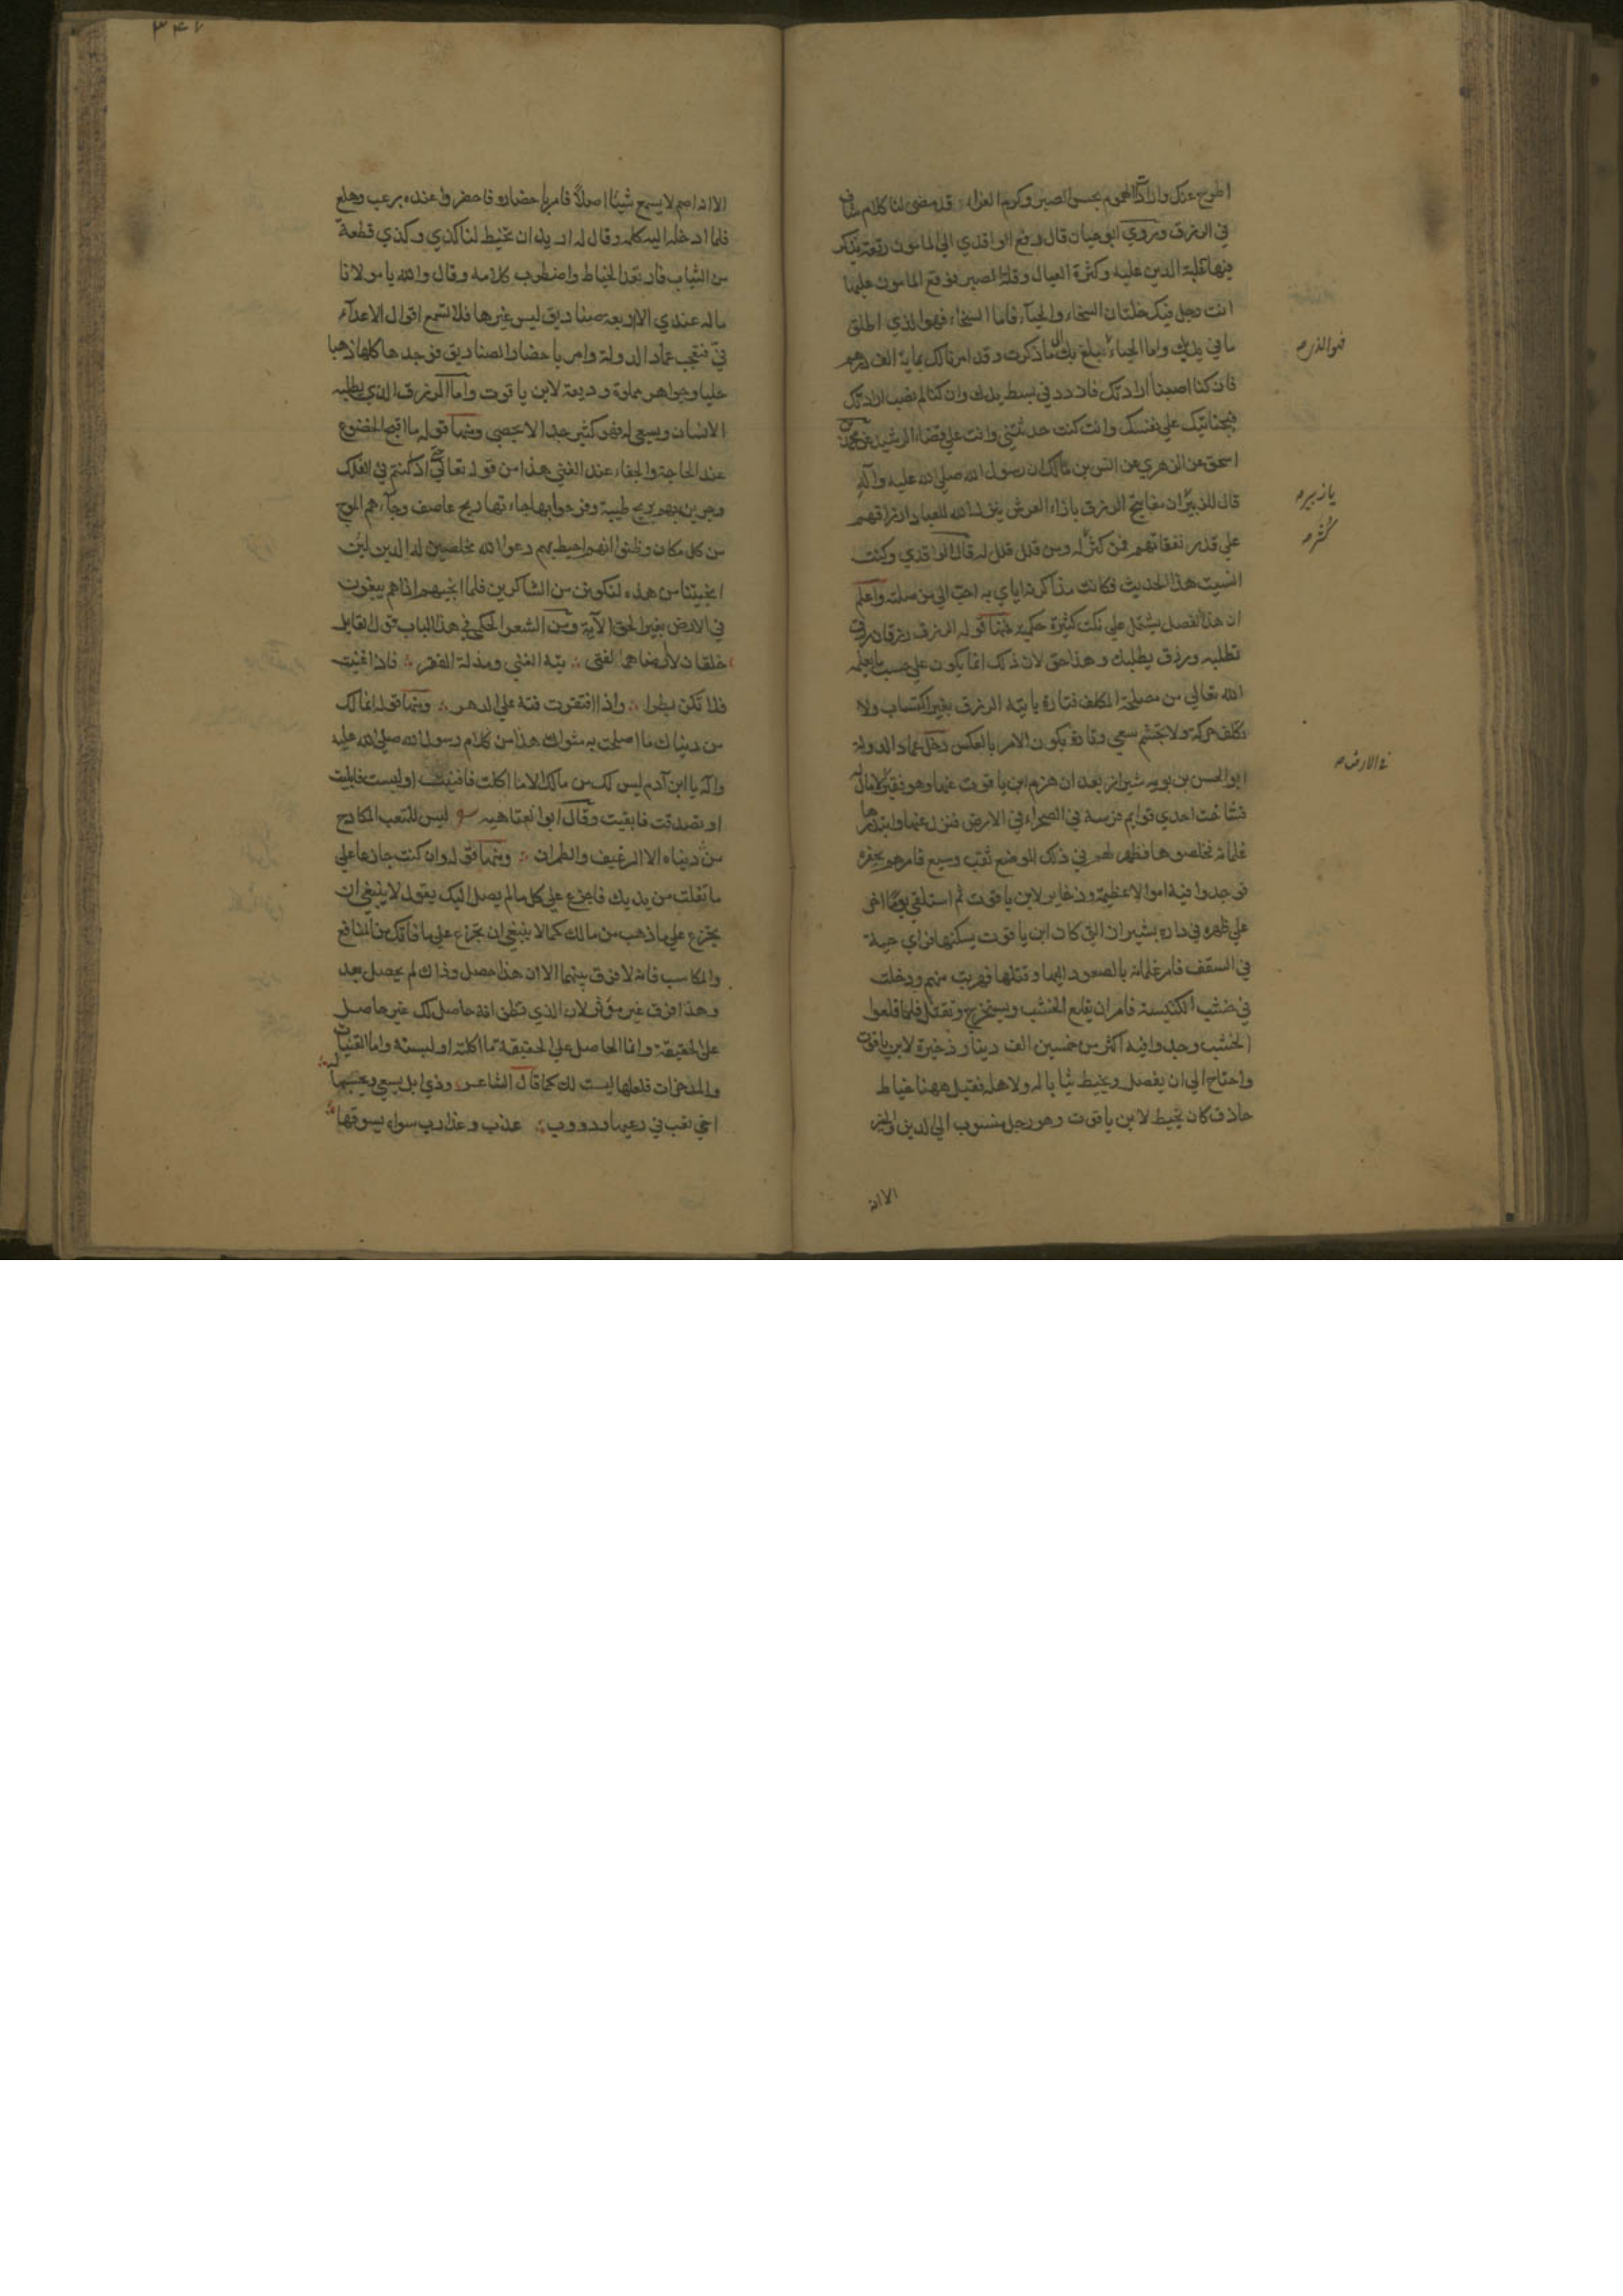 اطرح عنك واردات الهموم بحسن الصبر وكرم العزاء قد مضى لنا كلام شاف
في الرزق وروي ابو حيان قال رفع الواقدي الي المامون رقعة يذكر
فيها غلبة الدين عليه وكثرة العيال وقلة الصبر فوقع المامون عليها
انت رجل فيك خلتان السخاء والحياء فاما السخاء فهو الذي اطلق
ما في يديك واما الحياء فبلغ بك الي ما ذكرت وقد امرنا لك بماية الف درهم
فان كنا اصبنا ارادتك فازدد في بسط يدك وان كنا لم نصب ارادتك
فبجنايتك علي نفسك وانت كنت حدثتني وانت علي قضاء الرشيد عن محمد بن
اسحق عن الزهري عن انس بن مالك ان رسول الله صلي الله عليه وآله
قال للزبير ان مفاتيح الرزق بازاء العرش ينزل الله للعباد ارزاقهم
علي قدر نفقاتهم فمن كثر كثر له ومن قلل قلل له قال الواقدي وكنت
انسيت هذا الحديث فكانت مذاكرته اياي به احب الي من صلته واعلم
ان هذا الفصل يشتمل علي نكت كثيرة حكمية فمنها قوله الرزق رزقان رزق
تطلبه ورزق يطلبك وهذا حق لان ذلك انما يكون علي حسب ما يعلمه
الله تعالي من مصلحة المكلف فتارة ياتيه الرزق بغير اكتساب ولا
تكلف حركة ولا تجشم سعي وتارة يكون الامر بالعكس دخل عماد الدولة
ابو الحسن بن بويه شيراز بعد ان هزم ابن ياقوت عنها وهو فقير لا مال له
فساخت احدي قوايم فرسه في الصحراء في الارض فنزل عنها وابتدرها
غلمانه فخلصوها فظهر لهم في ذلك الموضع نقب وسيع فامرهم بحفره
فوجدوا فيه اموالا عظيمة وذخاير لابن ياقوت ثم استلقي يوما اخر
علي ظهره في داره بشيراز التي كان ابن ياقوت يسكنها فراي حية
في السقف فامر غلمانه بالصعود اليها وقتلها فهربت منهم ودخلت
في خشب الكنيسة فامر ان يقلع الخشب ويستخرج وتقتل فلما قلعوا
الخشب وجدوا فيه اكثر من خمسين الف دينار ذخيرة لابن ياقوت
واحتاج الي ان يفصل ويخيط ثيابا له ولاهله فقيل ههنا خياط
حاذق كان يخيط لابن ياقوت وهو رجل منسوب الي الدين والخير
الا انه
فهو الذي صح
يا زبير صح
كثر صح
في الارض صح
٣٤٧
الا انه اصم لا يسمع شيئا اصلا فامر باحضاره فاحضر وعنده رعب وهلع
فلما ادخله اليه كلمه وقال له اريد ان تخيط لنا كذي وكذي قطعة
من الثياب فارتعد الخياط واضطرب كلامه وقال والله يا مولانا
ما له عندي الا اربعة صناديق ليس غيرها فلا تسمع اقوال الاعداء
في فتعجب عماد الدولة وامر باحضار الصناديق فوجدها كلها ذهبا
حليا وجواهر مملوة وديعة لابن ياقوت واما الرزق الذي يطلبه
الانسان ويسعي له فهو كثير جدا لا يحصي ومنها قوله ما اقبح الخضوع
عند الحاجة والجفاء عند الغني هذا من قوله تعالي حتي اذا كنتم في الفلك
وجرين بهم بريح طيبة وفرحوا بها جاءتها ريح عاصف وجاءهم الموج
من كل مكان وظنوا انهم احيط بهم دعوا الله مخلصين له الدين لئن
انجيتنا من هذه لنكونن من الشاكرين فلما انجيهم اذا هم يبغون
في الارض بغير الحق الآية ومن الشعر الحكمي في هذا الباب قول القايل
خلقان لا ارضاهما لفتي ؞ تيه الغني ومذلة الفقر ؞ فاذا غنيت
فلا تكن بطرا ؞ واذا افتقرت فته علي الدهر ؞ ومنها قوله انما لك
من دنياك ما اصلحت به مثواك هذا من كلام رسول الله صلي الله عليه
وآله يا ابن آدم ليس لك من مالك الا ما اكلت فافنيت او لبست فابليت
او تصدقت فابقيت وقال ابو العتاهيه ليس للمتعب المكادح
من دنياه الا الرغيف والطمران ؞ ومنها قوله وان كنت جازعا علي
ما تفلت من يديك فاجزع علي كل ما لم يصل اليك يقول لا ينبغي ان
يجزع علي ما ذهب من مالك كما لا ينبغي ان تجزع علي ما فاتك من المنافع
والمكاسب فانه لا فرق بينهما الا ان هذا حصل وذاك لم يحصل بعد
وهذا فرق غير مؤثر لان الذي تظن انه حاصل لك غير حاصل
علي الحقيقة وانما الحاصل علي الحقيقة ما اكلته او لبسته واما القنيات
والمدخرات فلعلها ليست لك كما قال الشاعر وذي ابل يسعي ويحسبها له ؞
اخي تعب في رعيها ودووب ؞ غدت وغدا رب سواه يسوقها ؞